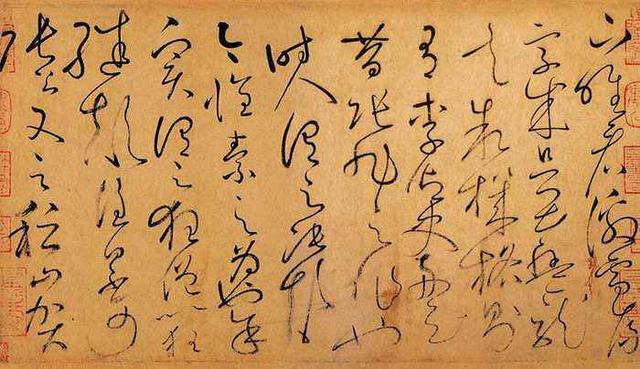 下唯看激電流
字成只畏盤龍
走敘機格則
有李御史舟云
昔張旭之作也
時人謂之張顛
今懷素之為也余
實謂之狂僧以狂
繼顛誰曰不可
張公又云稽山賀